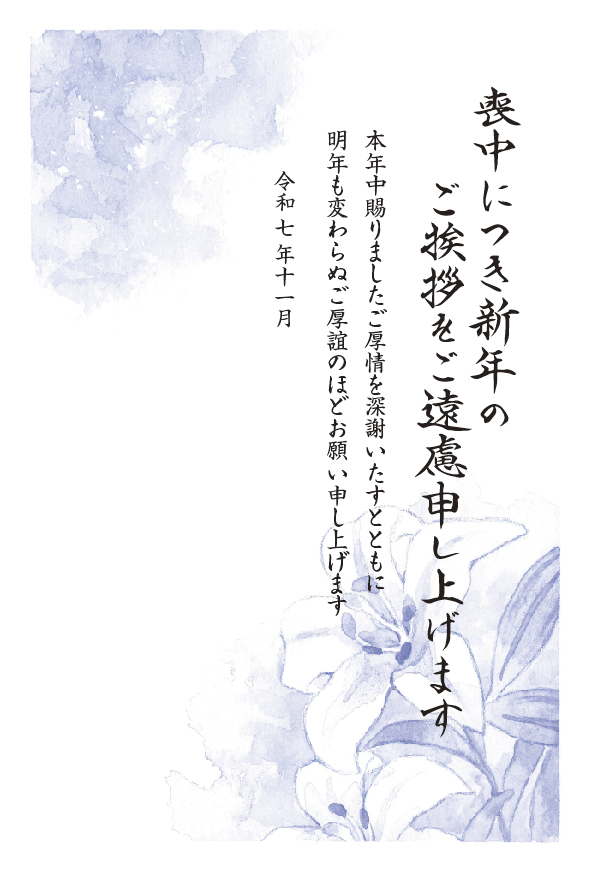 喪中につき新年の
ご挨拶をご遠慮申し上げます
本年中賜りましたご厚情を深謝いたすとともに
明年も変わらぬご厚誼のほどお願い申し上げます
令和七年十一月